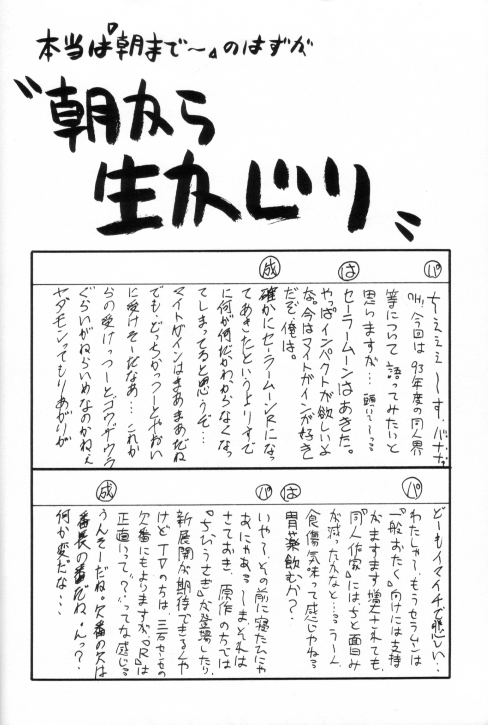 本当は『朝まで〜』のはずが
〝朝から
生かじり〟
パ
ちぇぇぇ〜す、バナナ
今回は93年度の同人界
等について語ってみたいと
思いますが…
は
セーラームーンはあきた。
やっぱインパクトが欲しいよ
な。今はマイトガインが好き
だぞ俺は。
成
確かにセーラームーンRになっ
てあきたというよりすで
に何が何だかわからなくなっ
てしまってると思うぞ…
マイトガインはまあまあだね
でも、どっちかっつーとやおい
に受けそーだなあ…これか
らの受けっつーとゴウザウラ
ぐらいがねらいめなのかねぇ
ヤダモンってもりあがりが
パ
どーもイマイチで悲しい…
わたしゃ〜もうセラムンは
『一般おたく』向けには支持
がますます増大されても、
『同人作家』にはちと面白み
が減ったかなと…う〜ん
食傷気味って感じやねぇ
は
胃薬飲むか?
パ
いや〜、その前に寝たひにゃ
あ、にゃある〜しまそれは
さておき、原作の方では
『ちびうさぎ』が登場したり、
新展開が期待できるんや
けど、TVのほうは、三石セーもの
欠番にもよりますが、『R』は
正直いって『?』ってな感じる
成
うんそーだね。欠番の欠は
番長の番だね。んっ?
何か変だな…